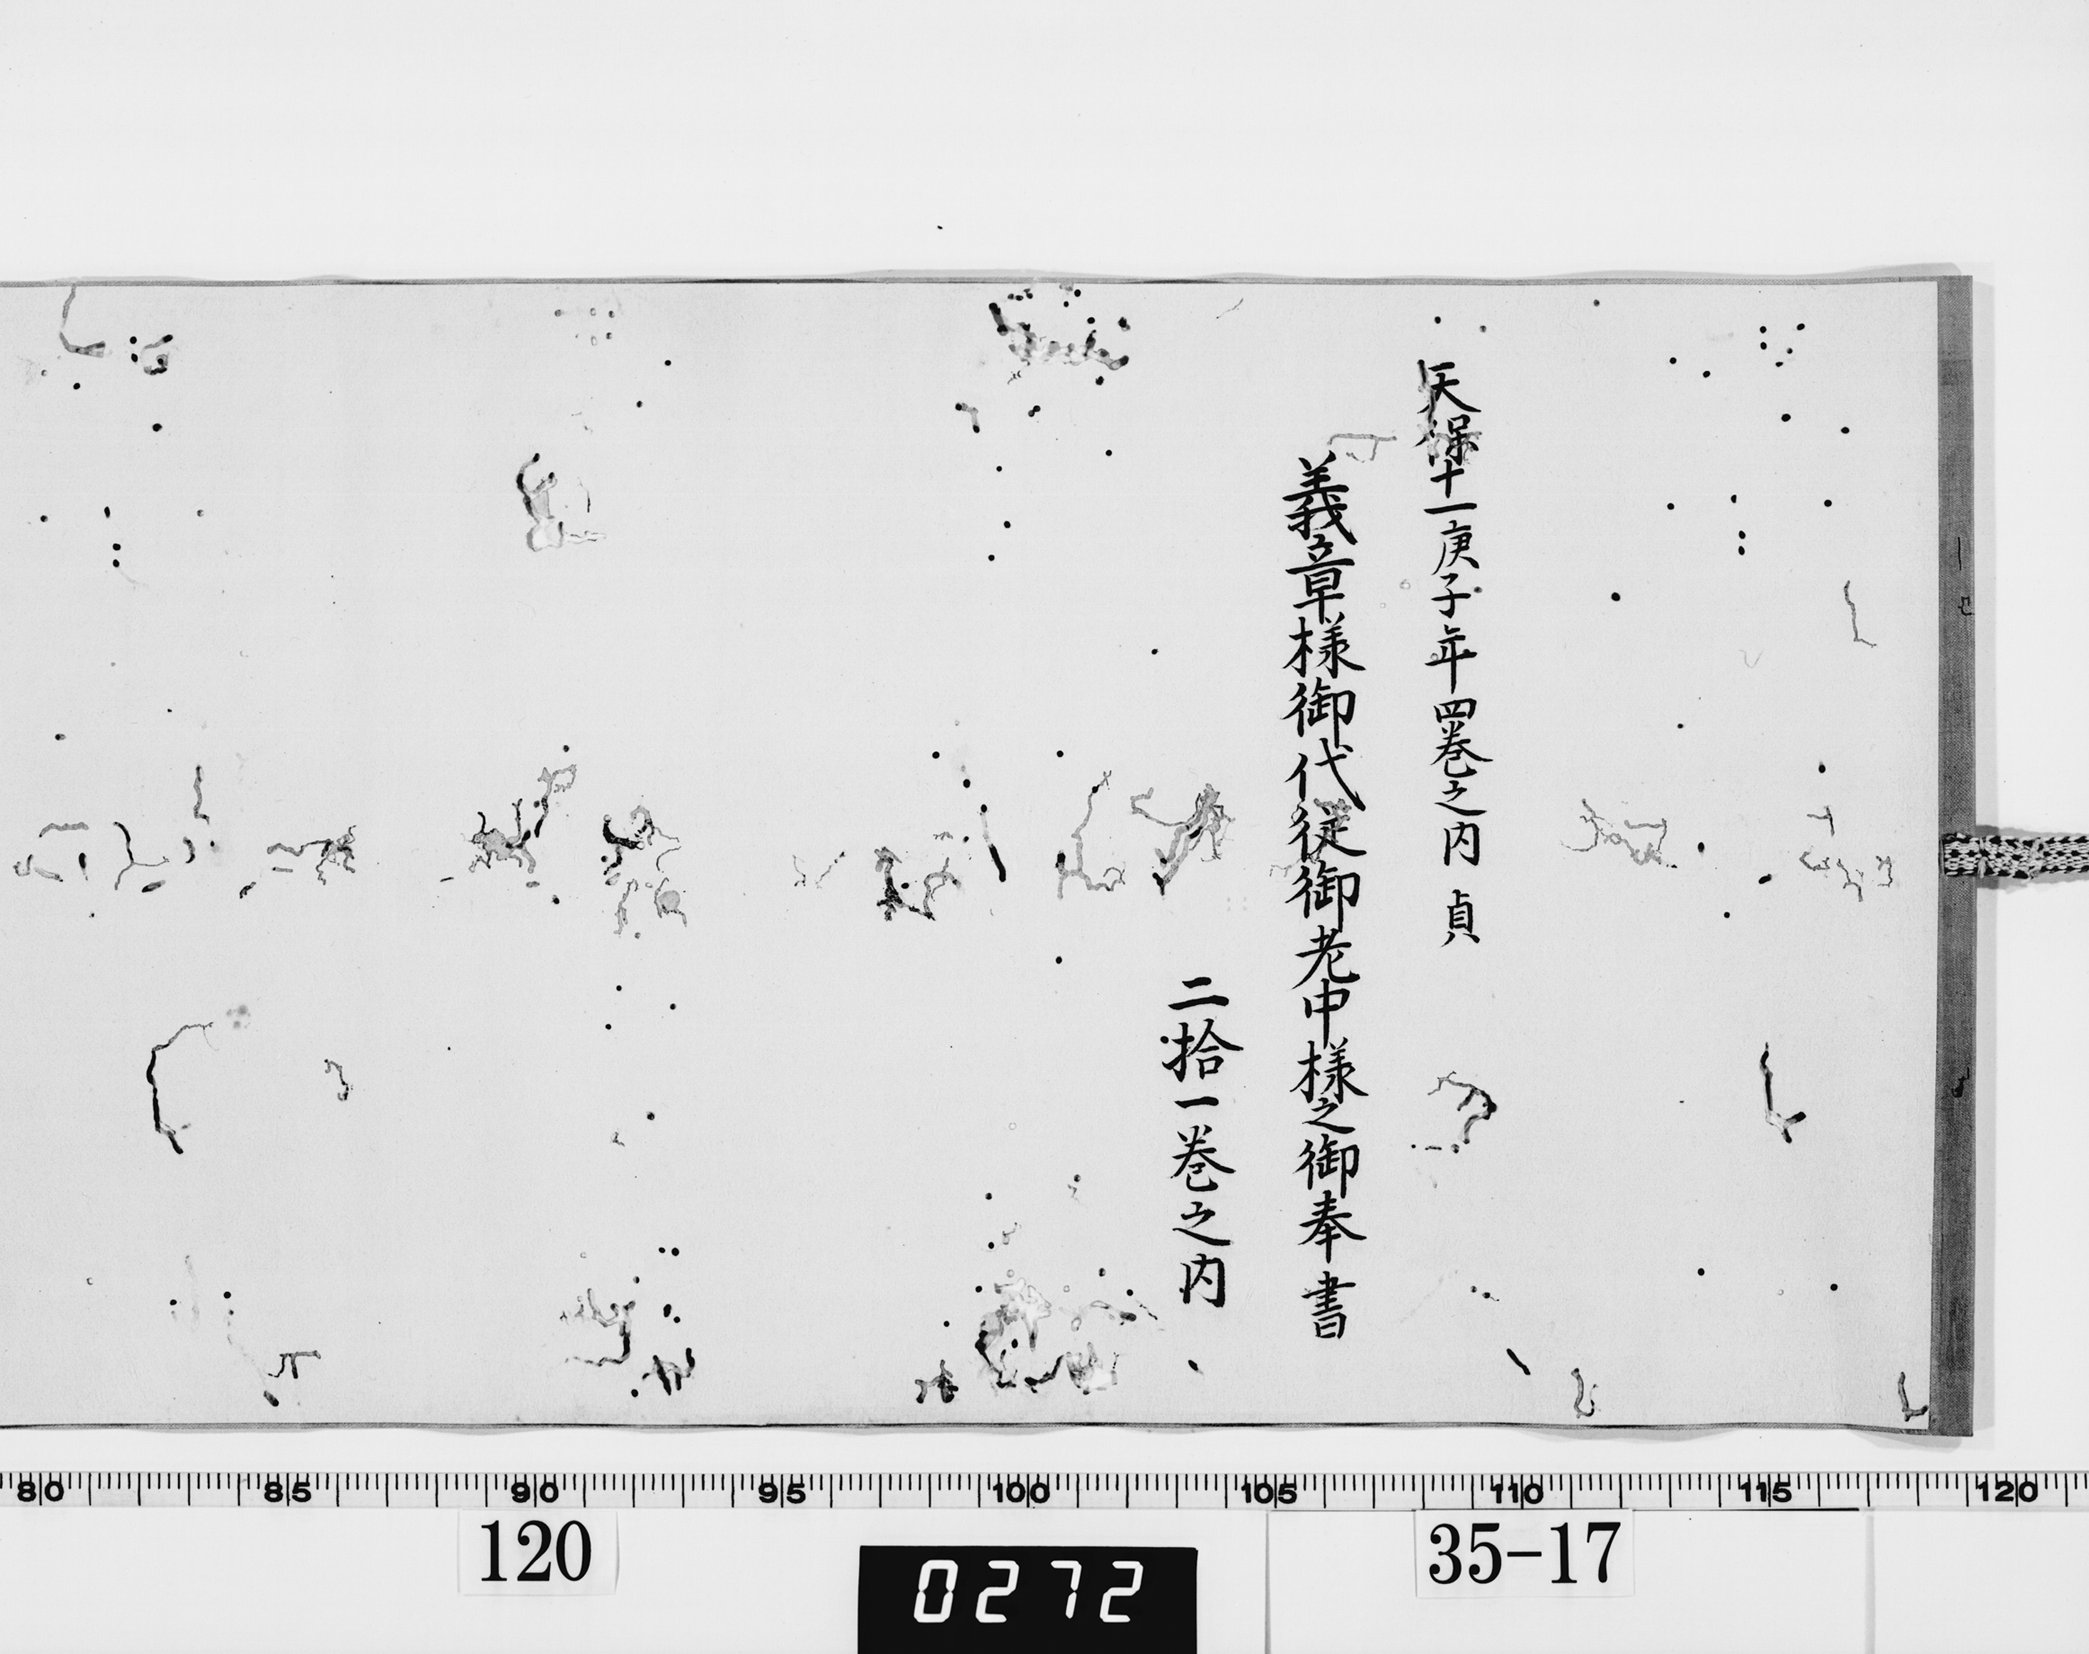 天保十一庚子年四巻之内 貞
義章様御代従御老中様之御奉書
二拾一巻之内
80 85 90 95 100 105 110 115 120
120
0272
35-17